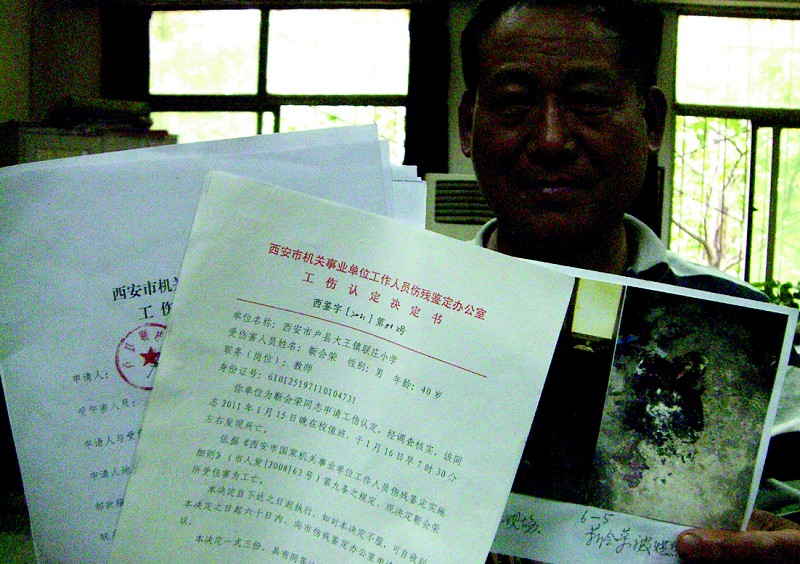 西安市机关事业单位工作人员伤残鉴定办公室
工伤认定决定书
西鉴字[2011]第 号
单位名称：西安市户县大王镇联庄小学
受伤害人员姓名：靳会荣 性别：男 年龄：40岁
职务（岗位）：教师
身份证号：610125197110104731
你单位为靳会荣同志申请工伤认定，经调查核实，该同
志2011年1月15日晚在校值班，于1月16日早7时30分
左右发现死亡。
依据《西安市国家机关事业单位工作人员伤残鉴定实施
细则》（市人发[2008]63号）第九条之规定，现决定靳会荣
所受伤害为工亡。
本决定自下达之日起执行，如对本决定不服，可自收到
本决定之日起六十日内，向市伤残鉴定办公室申
议。
本决定一式三份，具有同等
西安市机关
工伤
申请人：
受伤害人员：
申请人与受伤
申请人地
邮政编
联系
现场.
6-5
靳会荣被烧